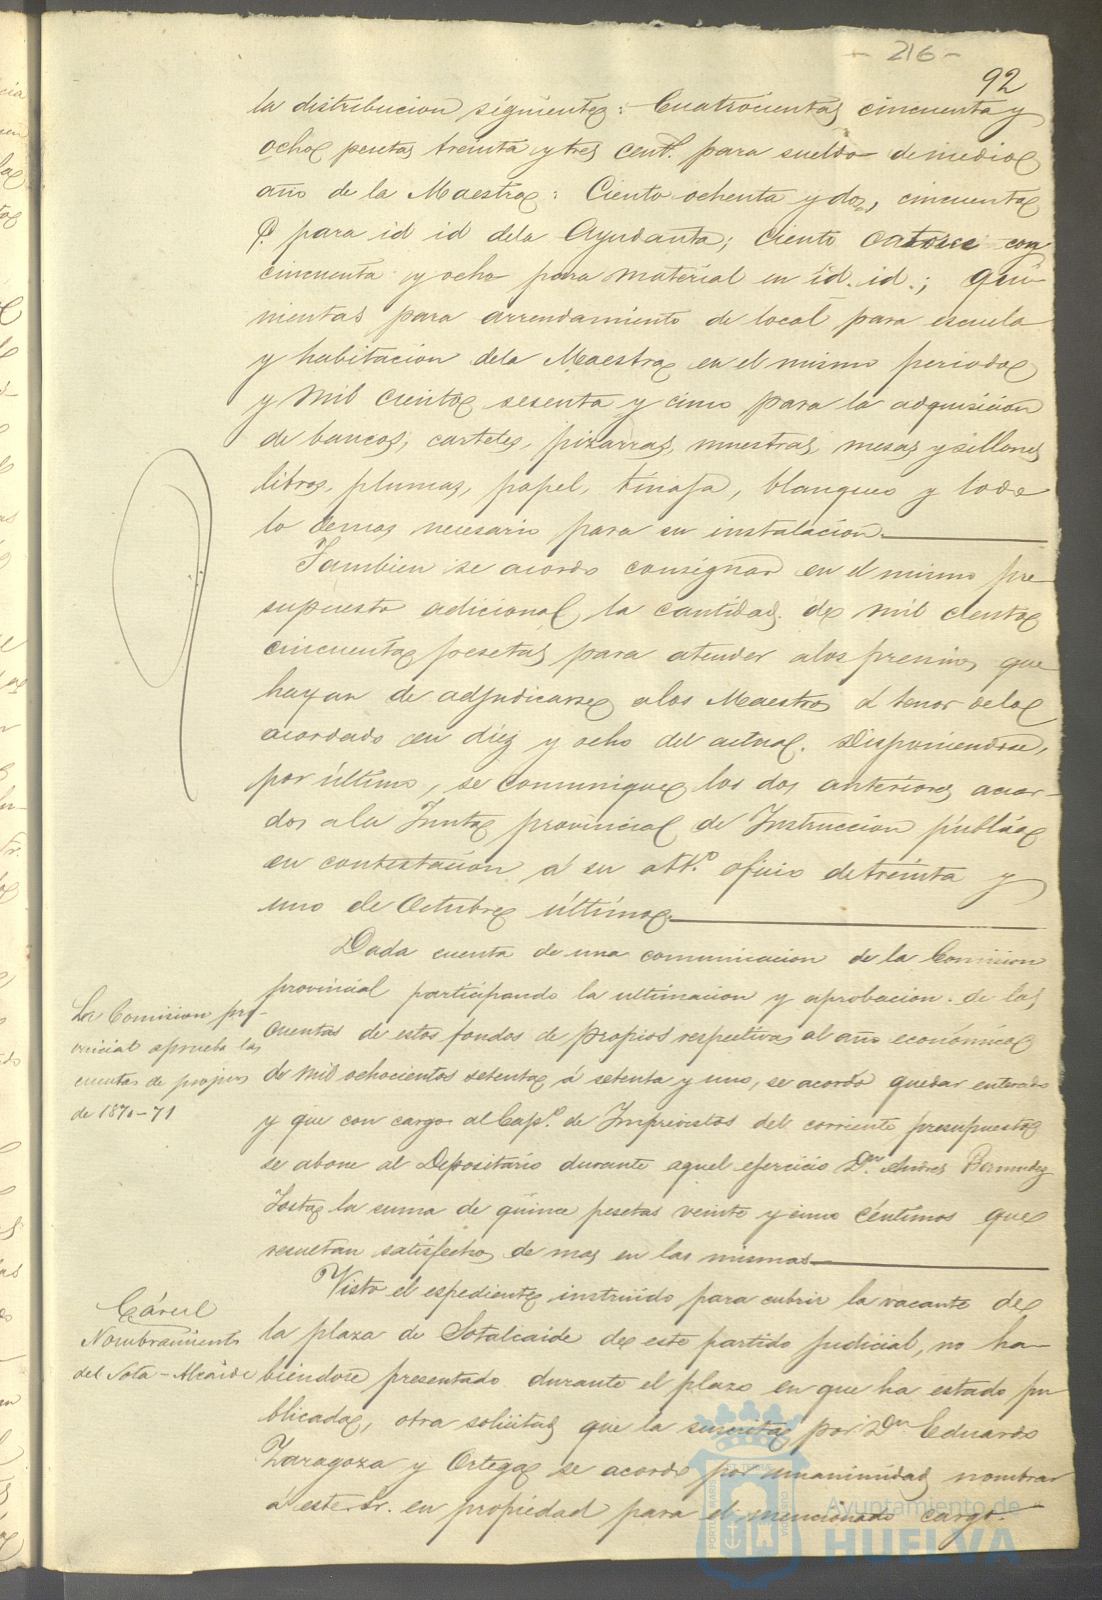 - 216 -
92
la distribucion siguiente: Cuatrocientas cincuenta y
ocho pesetas treinta y tres cent.s para sueldo de medio
año de la Maestra: Ciento ochenta y dos, cincuenta
c. para id id de la Ayudanta; ciento catorce con
cincuenta y ocho para material en id. id.; qui-
nientas para arrendamiento de local para escuela
y habitacion de la Maestra en el mismo periodo
y mil ciento sesenta y cinco para la adquisicion
de bancos, carteles, pizarras, muestras, mesas y sillones
libros, plumas, papel, tinaja, blanqueo y todo
lo demas necesario para su instalacion.
Tambien se acordo consignar en el mismo pre
supuesto adicional la cantidad de mil ciento
cincuenta pesetas para atender a los premios que
hayan de adjudicarse a los Maestros á tenor de lo
acordado en diez y ocho del actual. Disponiendose,
por último, se comunique los dos anteriores acuer-
dos a la Junta provincial de Instruccion pública
en contestacion á su att.o oficio de treinta y
uno de Octubre último.
Dada cuenta de una comunicacion de la Comision
provincial participando la ultimacion y aprobacion de las
cuentas de estos fondos de propios respectivas al año económico
de mil ochocientos setenta á setenta y uno, se acordó quedar enterado
y que con cargo al Cap.o de Imprevistos del corriente presupuesto
se abone al Depositario durante aquel ejercicio Dn. Andres Bermudez
Josta la suma de quince pesetas veinte y cinco céntimos que
resultan satisfechas de mas en las mismas.
La Comision pro-
vincial aprueba las
cuentas de propios
de 1870-71
Visto el espediente instruido para cubrir la vacante de
la plaza de Sotalcaide de este partido judicial, no ha-
biendose presentado durante el plazo en que ha estado pu
blicada, otra solicitud que la suscrita por Dn Eduardo
Zaragoza y Ortega se acordo por unanimidad nombrar
á este Sr. en propiedad para el mencionado cargo.
Cárcel
Nombramiento
del Sota-Alcaide
Ayuntamiento de
HUELVA